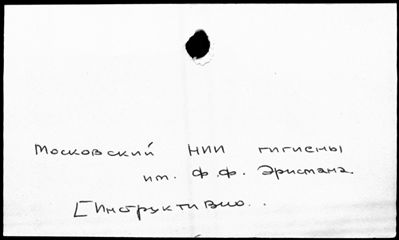 Московский НИИ гигиены
им. Ф.Ф. Эрисмана.
[Инструктивно..